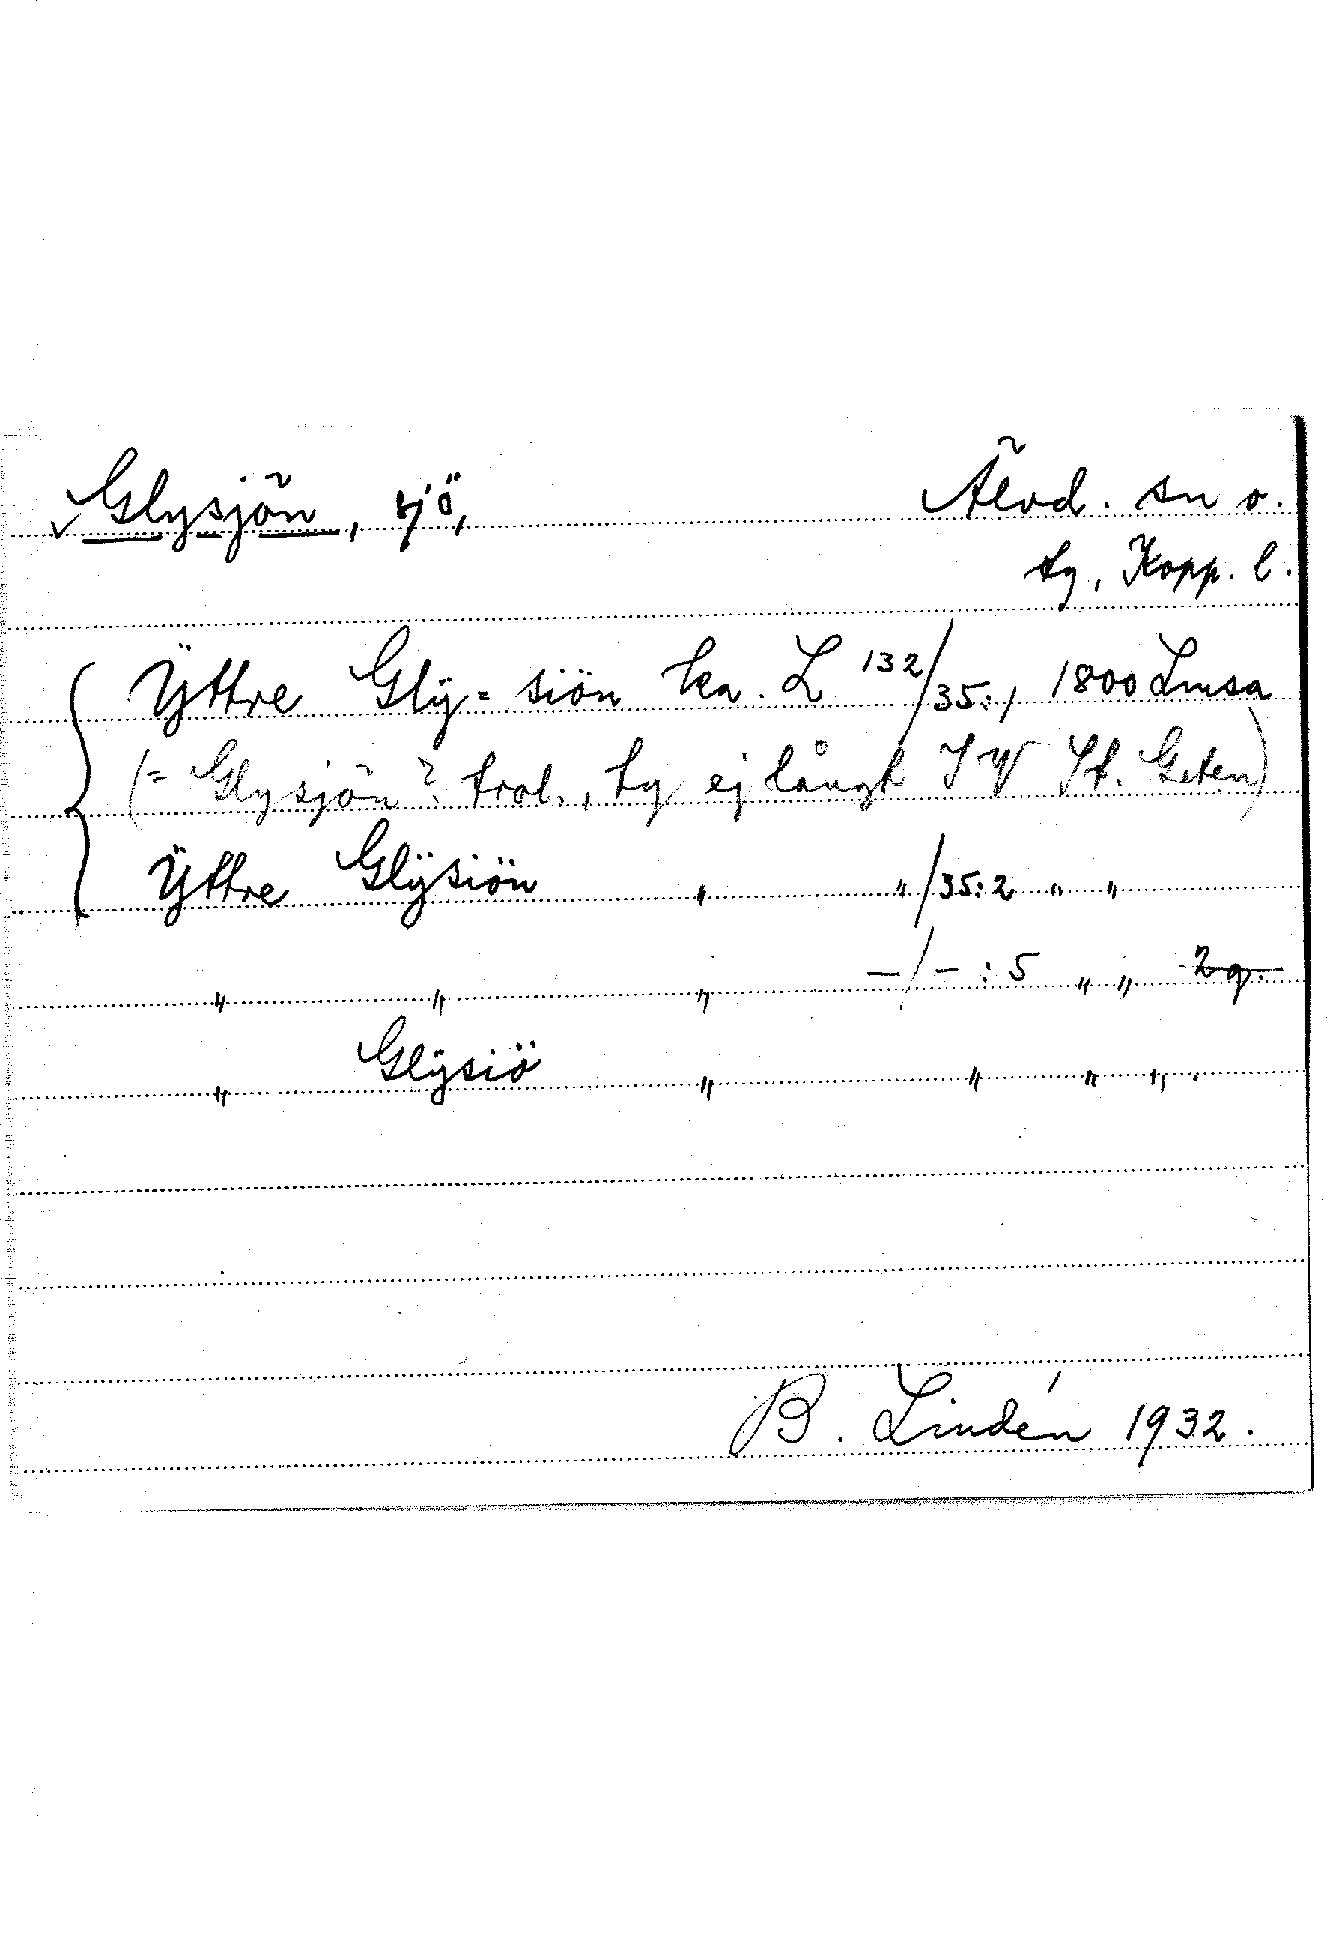 Glysjön, sjö, Älvd. sn o.
tg, Kopp. l.
Ÿttre Glÿ= siön ka. L 132/35:1 1800 Lmsa
(= Glysjön? trol., ty ej långt SV St. Geten)
Ÿttre Glÿsiön " " /35:2 " "
" " " —/— :5 " " 2 g.
" Glÿsiö " " " ".
B. Lindén 1932.